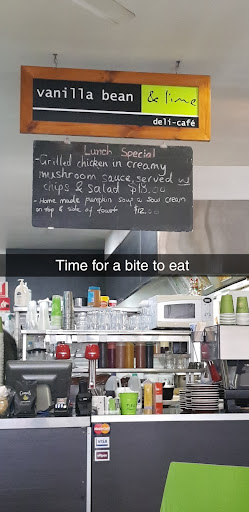 vanilla bean & lime
deli-café
Lunch Special
- Grilled chicken in creamy
mushroom sauce, served with
chips & salad $13.00
- Home made pumpkin soup & sour cream
on top & side of toast $12.00
Time for a bite to eat
MasterCard
VISA
eftpos